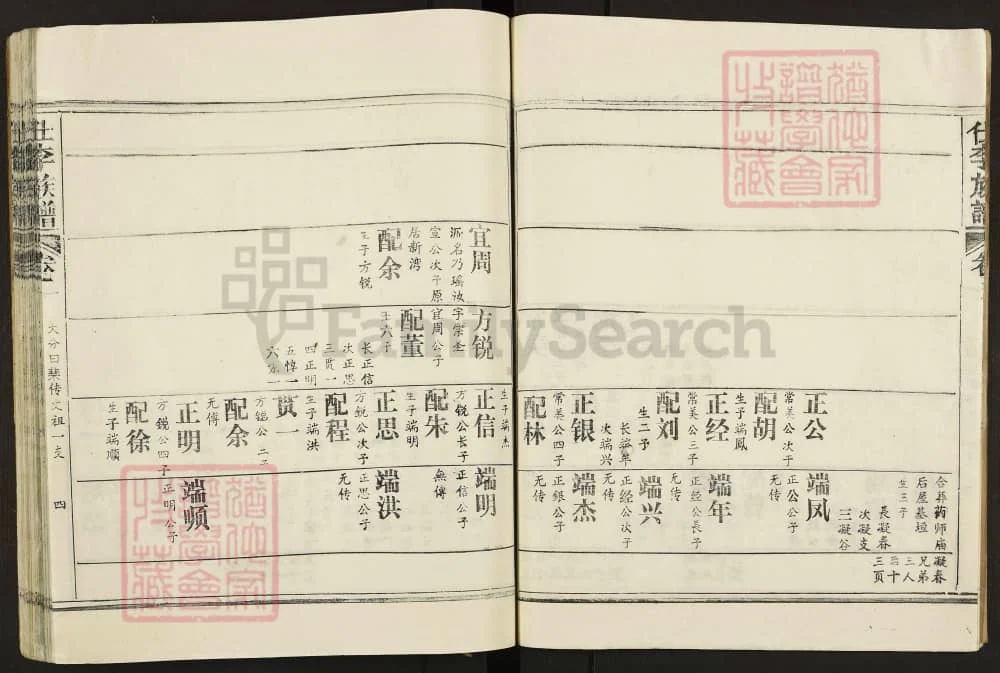 仕李族譜
合葬药师庙
后屋基垣
生三子
長凝春
次凝支
三凝谷
凝春
兄弟
三人
三十
三页
正公
常美公次子
配胡
生子端鳳
正经
常美公三子
配刘
生二子
长端年
次端兴
正银
常美公四子
配林
生子端杰
端凤
正公公子
无传
端年
正经公長子
无传
端兴
正经公次子
无传
端杰
正銀公子
无传
宜周
派名乃瑶汝字常圣
宣公次子原
居新湾
配余
生子方锐
方锐
宜周公子
配董
生六子
长正信
次正思
三贯一
四正明
五惇一
正信
方锐公長子
配朱
生子端明
正思
方銳公次子
配程
生子端洪
贯一
配余
无傳
正明
方銳公四子
配徐
生子端順
端明
正信公子
無傳
端洪
正思公子
无传
端顺
正明公子
仕李族譜
卷一
四
FamilySearch
譜學會